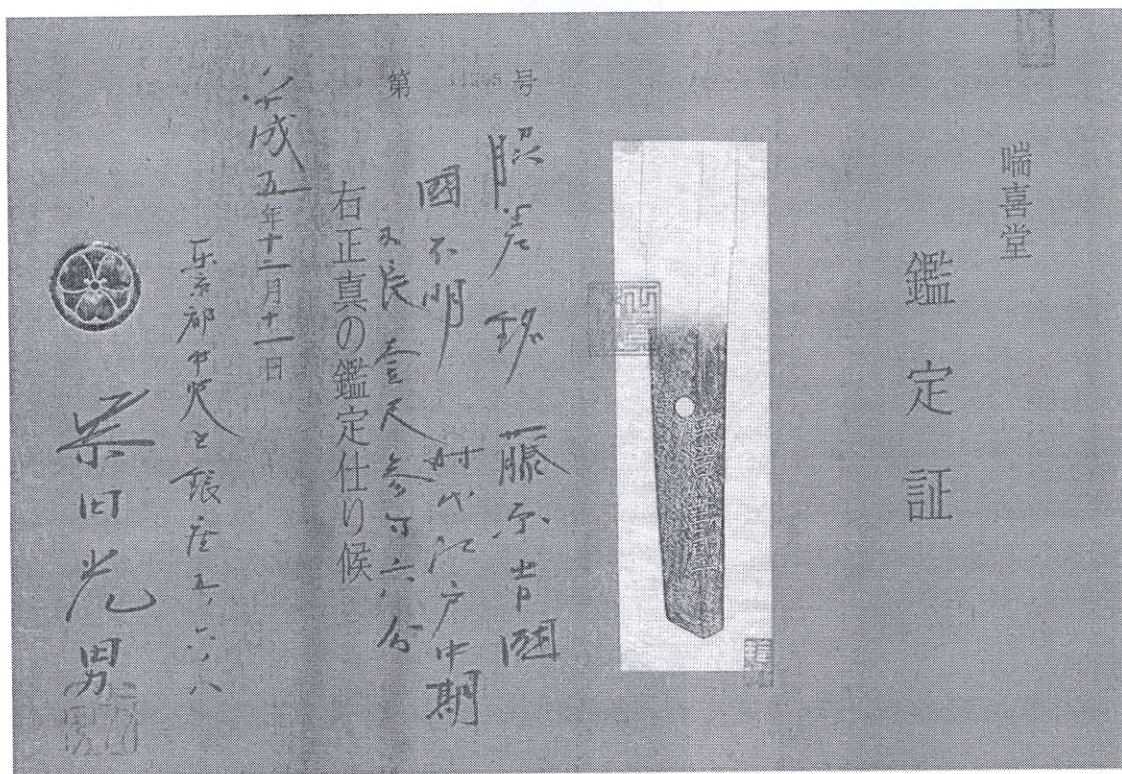 喘喜堂
鑑定証
第 11245 号
脇差 銘 藤原吉國
國不明 時代江戸中期
刃長 壹尺参寸六分
右正真の鑑定仕り候
平成五年十二月十一日
東京都中央区銀座五、六、八
柴田光男